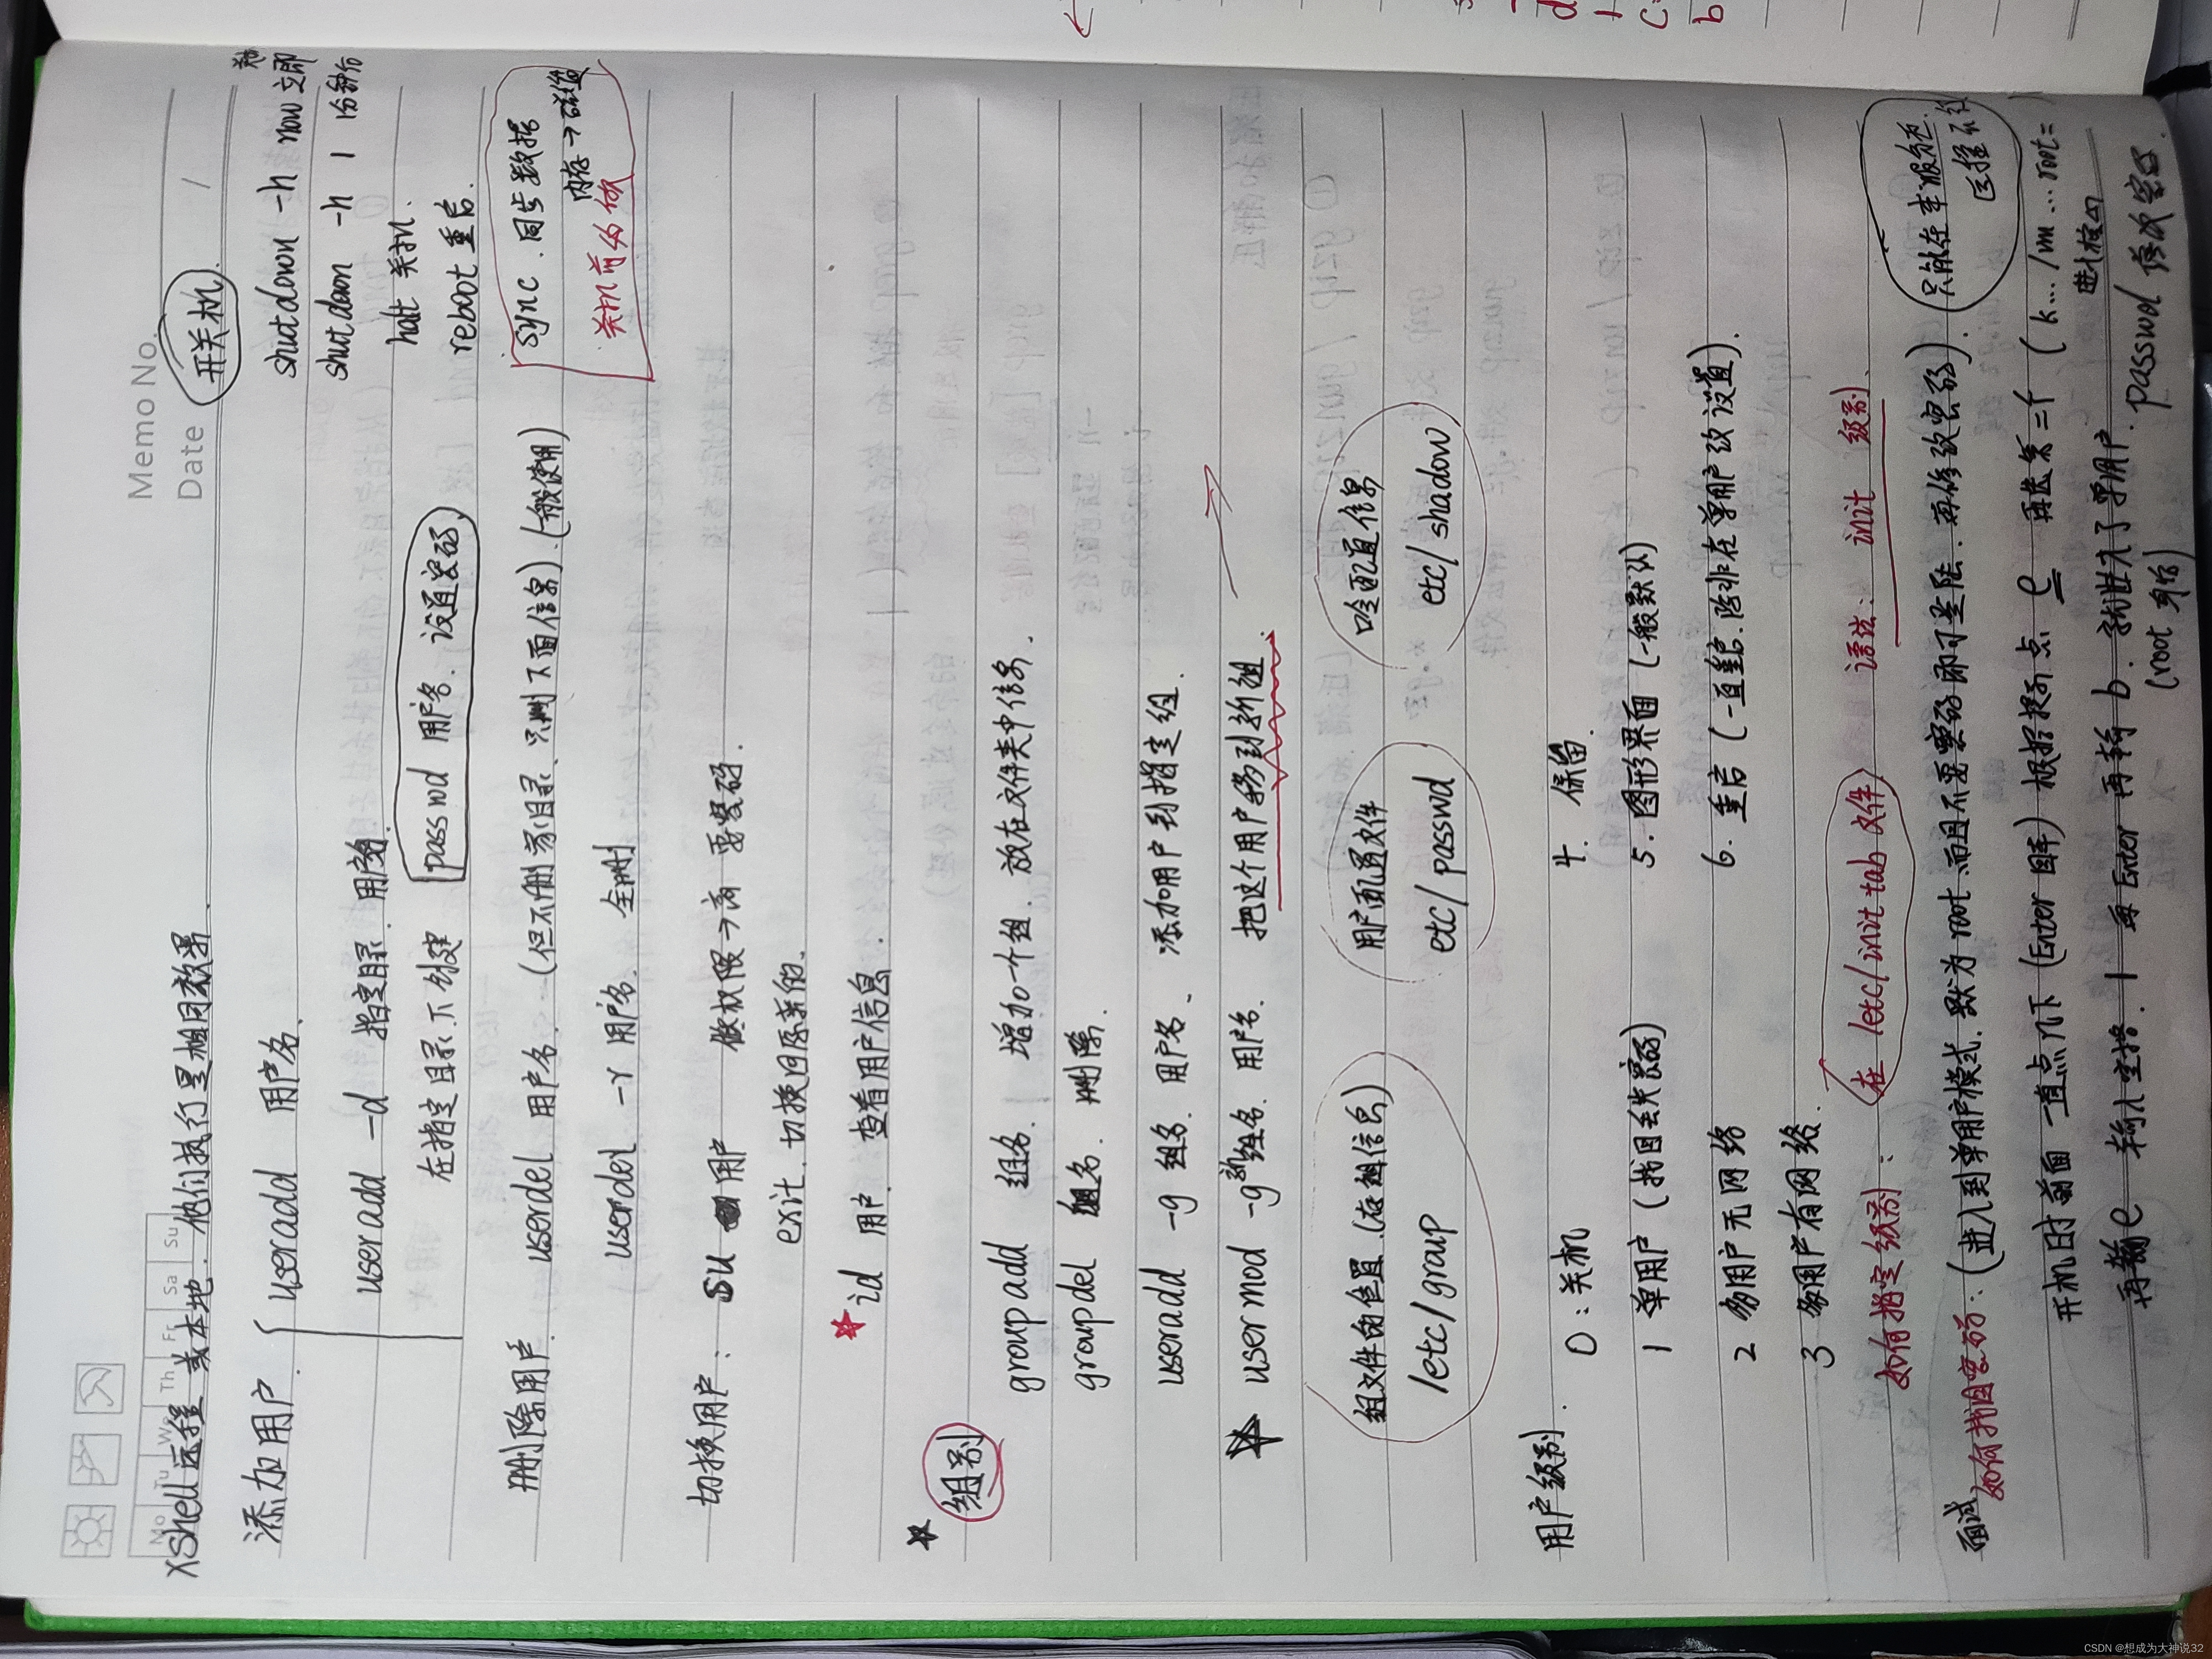 Memo No.
Date /
Mo Tu We Th Fr Sa Su
XShell远程 或本地. 他们执行是相同效果.
开关机.
添加用户. useradd 用户名.
shutdown -h now 立即
useradd -d 指定目录. 用户名.
shutdown -h 1 1分钟后
在指定目录下创建
passwd 用户名. 设置密码
halt 关机.
reboot 重启.
删除用户. userdel 用户名. (但不删家目录. 只删下面信息).(一般使用)
sync. 同步数据
内存→磁盘
关机前的做
userdel -r 用户名. 全删
切换用户: su 用户 低权限→高 要密码.
exit. 切换回原来的.
id 用户. 查看用户信息.
组别
groupadd 组名. 增加一个组. 放在文件夹中信息.
groupdel 组名. 删除.
useradd -g 组名. 用户名. 添加用户到指定组.
usermod -g 新组名. 用户名. 把这个用户移到新组.
组文件的位置.(存组信息)
/etc/group
用户配置文件
etc/passwd
配置信息
etc/shadow
用户级别.
0:关机
4. 保留.
1 单用户 (找回丢失密码)
5. 图形界面 (一般默认)
2 多用户无网络
6. 重启 (一直重启.除非在单用户改设置).
3 多用户有网络.
如何指定级别: 在 /etc/inittab 文件 语法: init 级别.
面试 如何找回密码: (进入到单用户模式. 默为root.而且不要密码即可登陆. 再修改密码). (只能在本服务器.远程不行)
开机时前面 一直点几下 (Enter 回车) 根据提示点 e 再选第二个 (k.../vm...root=
进行按e)
再输e 输入空格. 1 再Enter 再输 b. 就进入了单用户. passwd 修改密码.
(root 身份)
CSDN @想成为大神说32